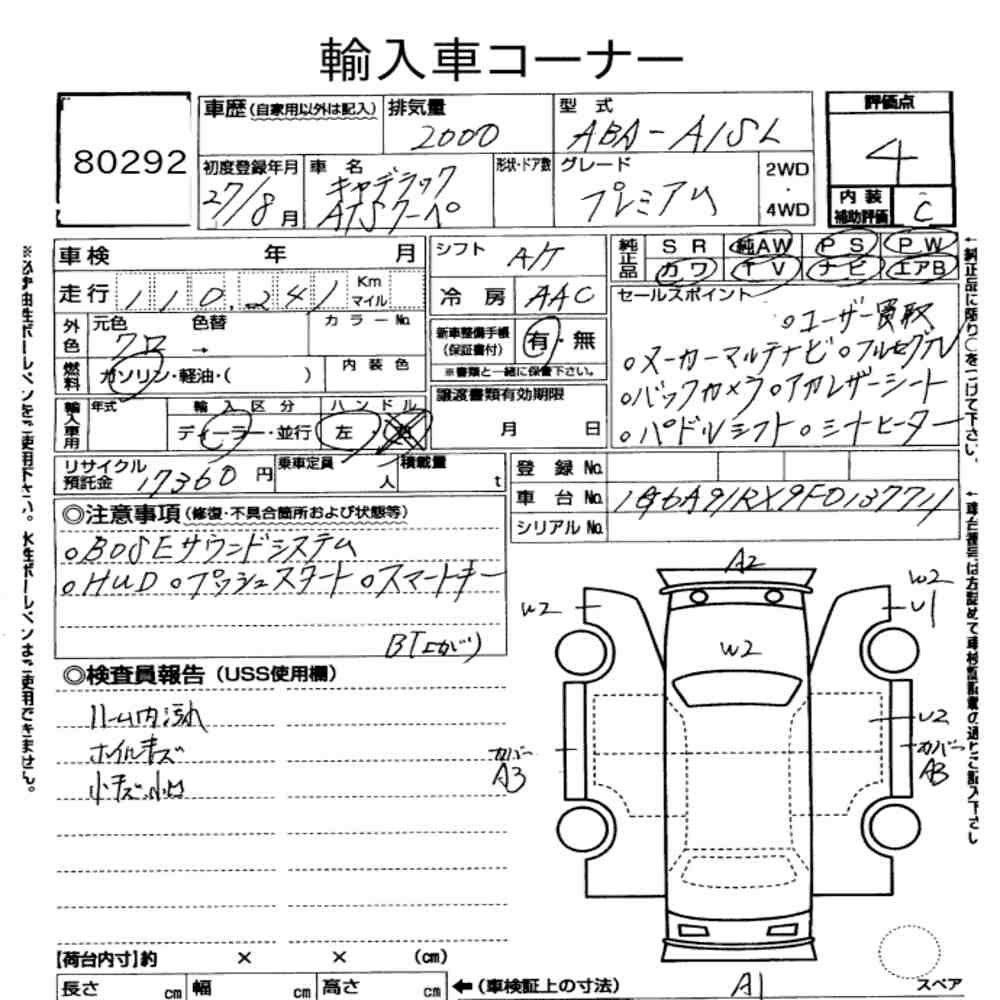 輸入車コーナー
80292
車歴(自家用以外は記入)
排気量
2000
型 式
ABA-A1SL
評価点
4
初度登録年月
27/8月
車 名
キャデラック
ATSクーペ
形状・ドア数
グレード
プレミアム
2WD
・
4WD
内 装
補助評価
C
車検 年 月
走行 110,241 Km マイル
シフト A/T
冷 房 AAC
純正品
SR 純AW PS PW
カワ TV ナビ エアB
外色
元色 色替
クロ →
カラーNo.
燃料
ガソリン・軽油・( )
内 装 色
新車整備手帳
(保証書付)
有・無
※書類と一緒に保管下さい。
セールスポイント
○ユーザー買取
○メーカーマルチナビ ○フルセグTV
○バックカメラ ○アカレザーシート
○パドルシフト ○シートヒーター
輸入車用
年式
輸 入 区 分
ディーラー・並行
ハ ン ド ル
左・右
譲渡書類有効期限
月 日
リサイクル
預託金 17360 円
乗車定員
人
積載量
t
登 録 No.
車 台 No.
1G6A91RX9F0137711
シリアル No.
◎注意事項(修復・不具合箇所および状態等)
○BOSEサウンドシステム
○HUD ○プッシュスタート ○スマートキー
BT上がり
◎検査員報告(USS使用欄)
ルーム内汚れ
ホイルキズ
小キズ・小凹
A2
W2
W2
U1
W2
U2
カバー
A3
カバー
A3
A1
スペア
【荷台内寸】約 × × (cm)
長さ cm 幅 cm 高さ cm
←(車検証上の寸法)
※必ず油性ボールペンをご使用下さい。水性ボールペンはご使用できません。
←純正品に限り○をつけて下さい。
←車台番号は左詰めで車検証記載の通りご記入下さい